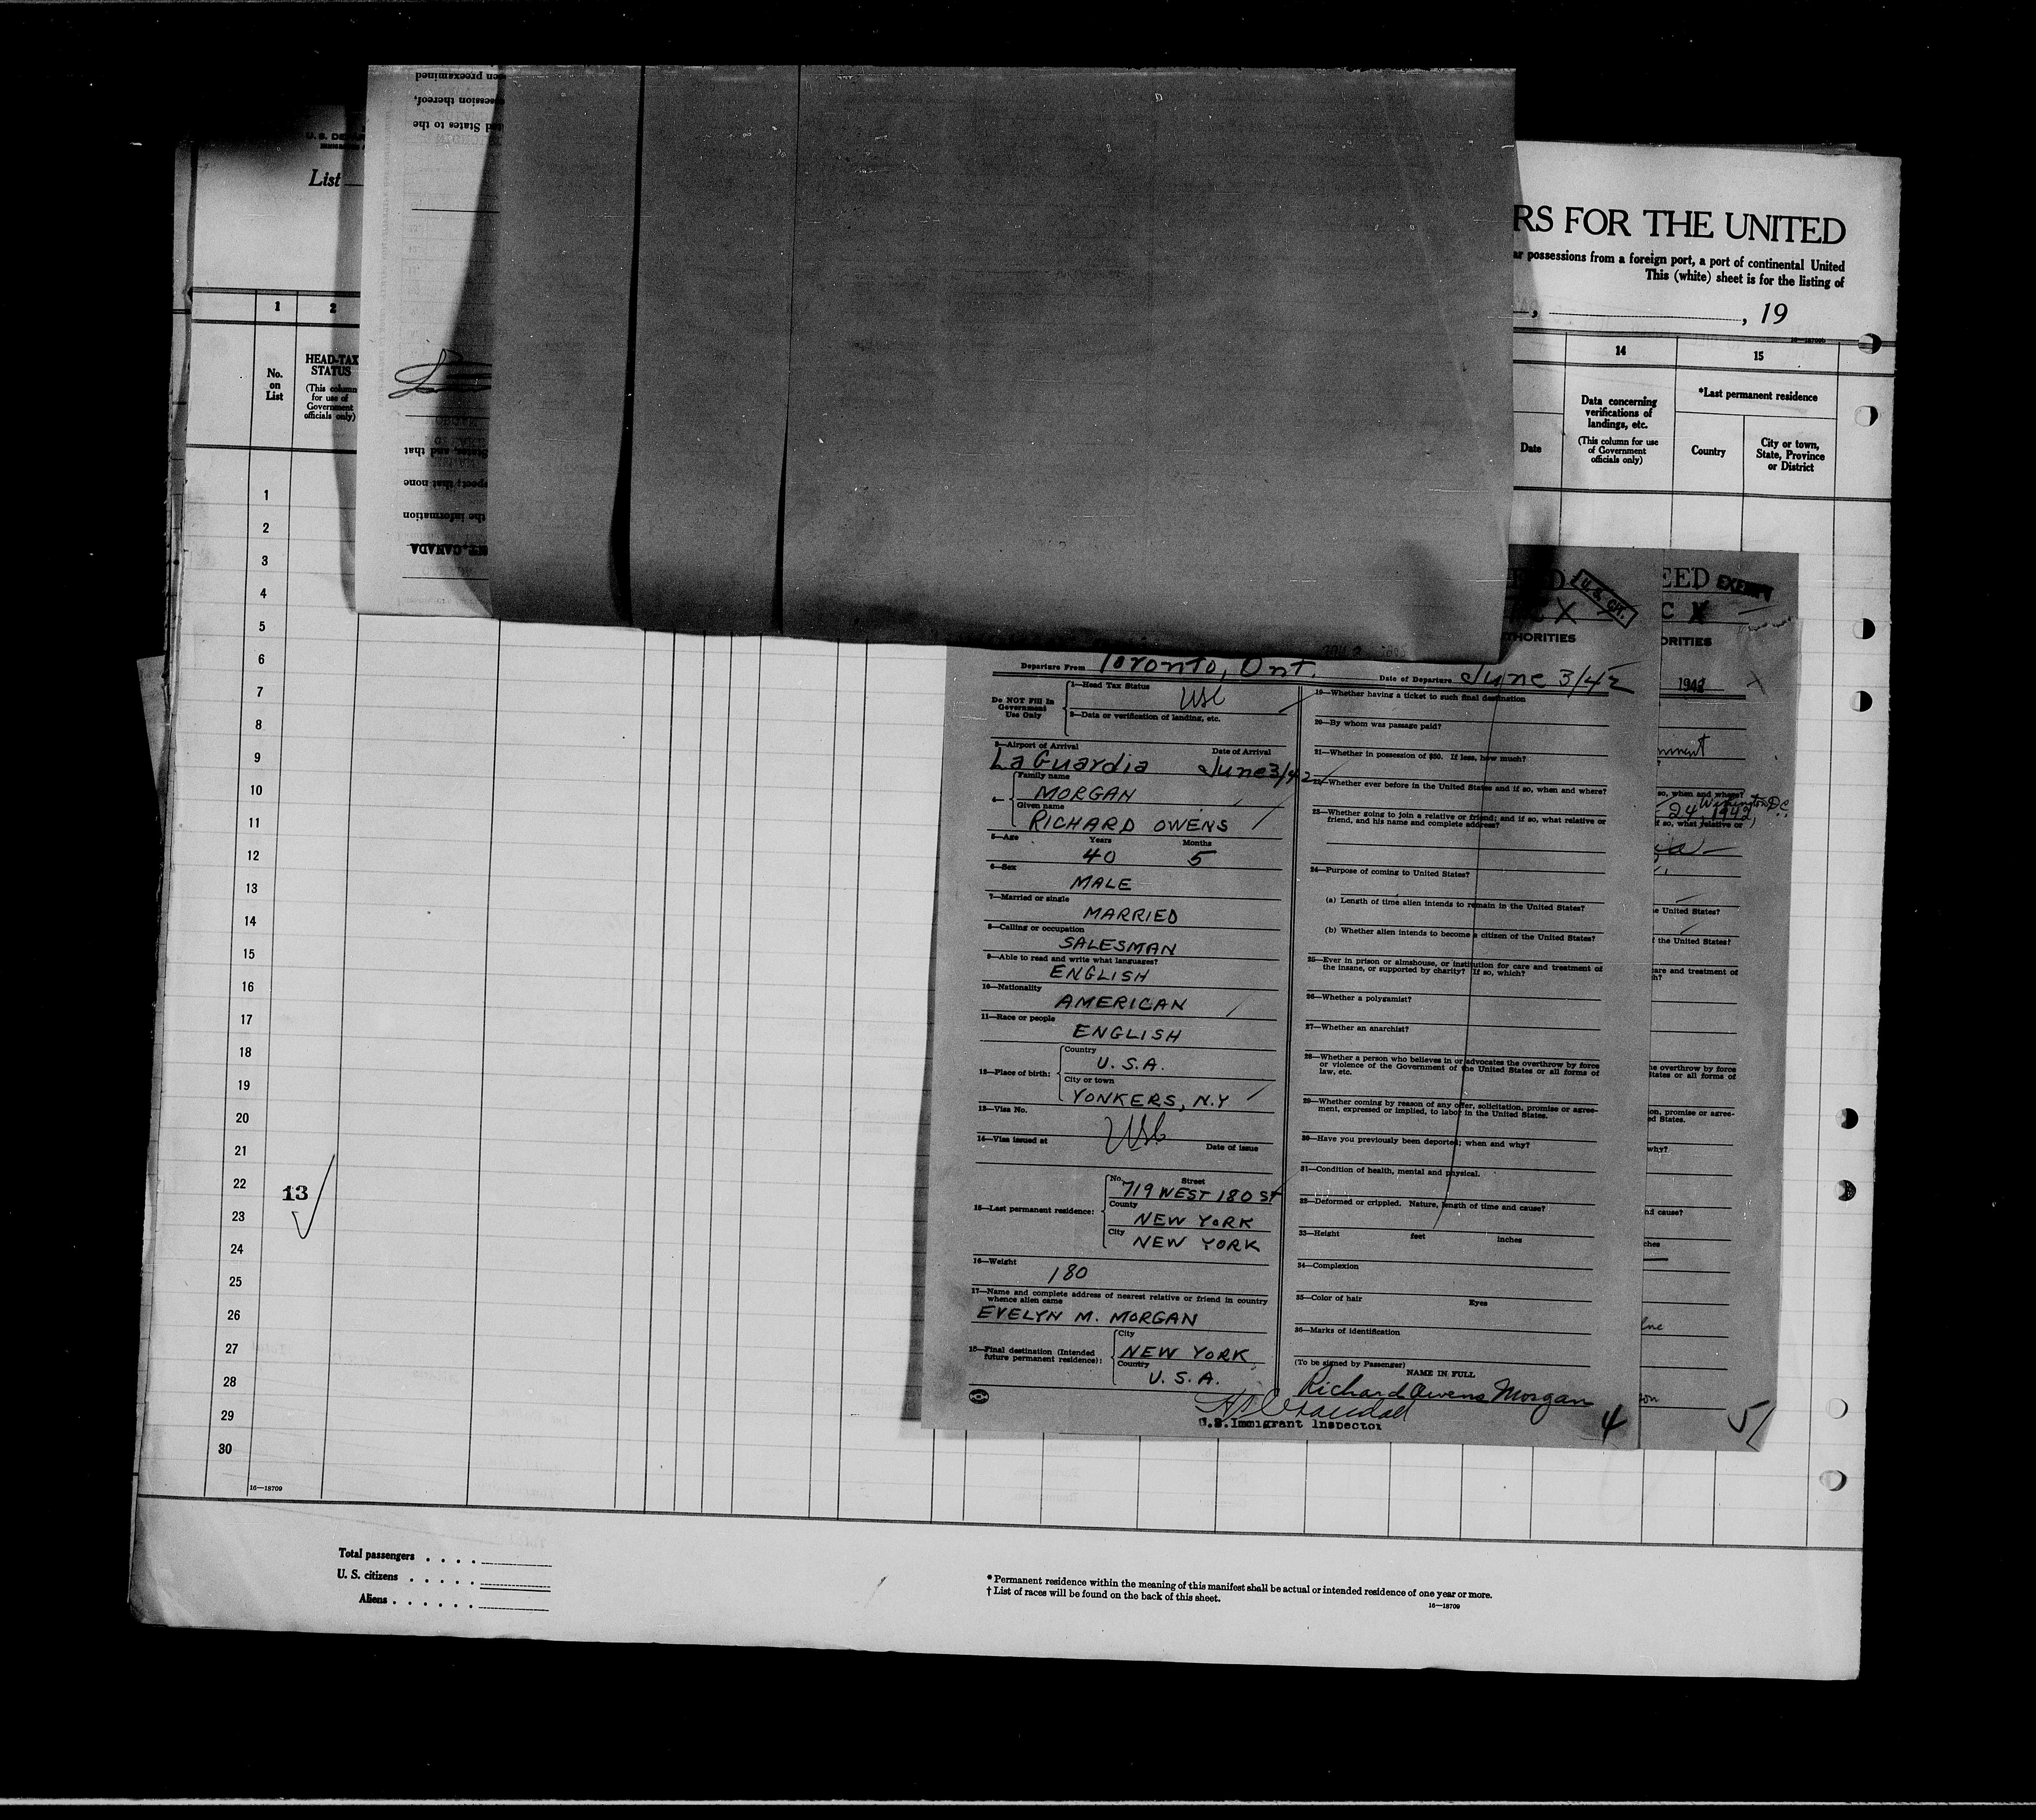 U. S. DEPAR
List
RS FOR THE UNITED
ar possessions from a foreign port, a port of continental United
This (white) sheet is for the listing of
, 19
1 2
No. on List
HEAD-TAX STATUS
(This column for use of Government officials only)
14 15
Date
Data concerning verifications of landings, etc.
(This column for use of Government officials only)
*Last permanent residence
Country
City or town, State, Province or District
een preexamined
session thereof,
ted States to the
States, and that
pect; that none
the information
NT. CANADA
1
2
3
4
5
6
7
8
9
10
11
12
13
14
15
16
17
18
19
20
21
22
23
24
25
26
27
28
29
30
13
U. S. CIT.
X
THORITIES
Departure From Toronto, Ont.
Date of Departure June 3/42
Do NOT Fill In Government Use Only
1—Head Tax Status USC
2—Data or verification of landing, etc.
3—Airport of Arrival Date of Arrival
La Guardia June 3/42
4—
Family name
MORGAN
Given name
RICHARD OWENS
5—Age Years Months
40 5
6—Sex
MALE
7—Married or single
MARRIED
8—Calling or occupation
SALESMAN
9—Able to read and write what languages?
ENGLISH
10—Nationality
AMERICAN
11—Race or people
ENGLISH
12—Place of birth:
Country
U.S.A.
City or town
YONKERS, N.Y
13—Visa No.
USC
14—Visa issued at Date of issue
15—Last permanent residence:
No. Street
719 WEST 180 ST
County
NEW YORK
City
NEW YORK
16—Weight
180
17—Name and complete address of nearest relative or friend in country
whence alien came
EVELYN M. MORGAN
18—Final destination (Intended
future permanent residence):
City
NEW YORK
Country
U.S.A.
19—Whether having a ticket to such final destination
20—By whom was passage paid?
21—Whether in possession of $50. If less, how much?
22—Whether ever before in the United States and if so, when and where?
23—Whether going to join a relative or friend; and if so, what relative or
friend, and his name and complete address?
24—Purpose of coming to United States?
(a) Length of time alien intends to remain in the United States?
(b) Whether alien intends to become a citizen of the United States?
25—Ever in prison or almshouse, or institution for care and treatment of
the insane, or supported by charity? If so, which?
26—Whether a polygamist?
27—Whether an anarchist?
28—Whether a person who believes in or advocates the overthrow by force
or violence of the Government of the United States or all forms of
law, etc.
29—Whether coming by reason of any offer, solicitation, promise or agree-
ment, expressed or implied, to labor in the United States.
30—Have you previously been deported; when and why?
31—Condition of health, mental and physical.
32—Deformed or crippled. Nature, length of time and cause?
33—Height feet inches
34—Complexion
35—Color of hair Eyes
36—Marks of identification
(To be signed by Passenger)
NAME IN FULL
Richard Owens Morgan
U.S. Immigrant Inspector
4
EED EXEMPT
C X
ORITIES
1942
so, when and where?
Washington, D.C.
24, 1942,
if so, what relative or
e United States?
the United States?
care and treatment of
h?
he overthrow by force
States or all forms of
on, promise or agree-
ed States.
why?
nd cause?
ches
5
16—18709
Total passengers
U. S. citizens
Aliens
* Permanent residence within the meaning of this manifest shall be actual or intended residence of one year or more.
† List of races will be found on the back of this sheet.
16—18709